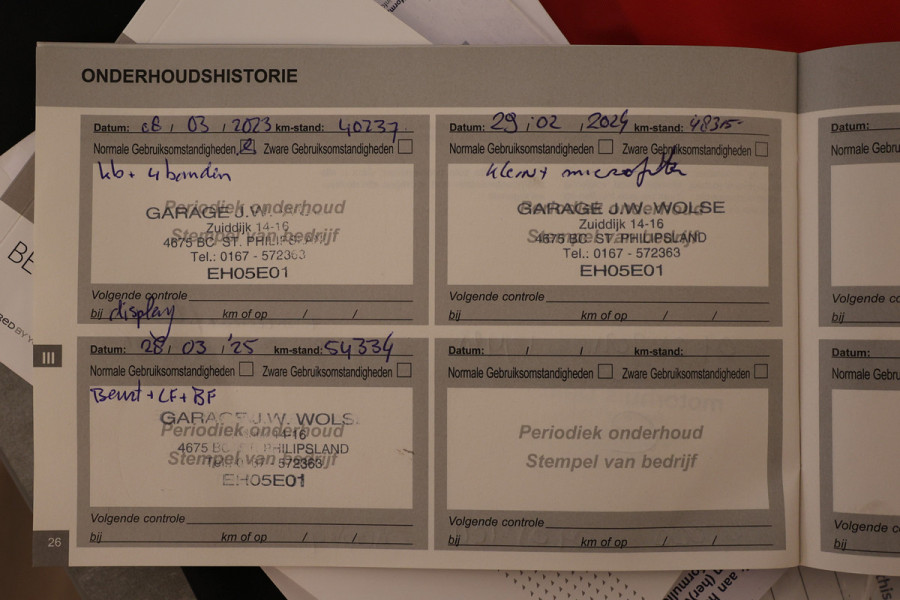 ONDERHOUDSHISTORIE
Datum: 08 / 03 / 2023 km-stand: 40237
Normale Gebruiksomstandigheden Zware Gebruiksomstandigheden
+ 4 banden
Periodiek onderhoud
GARAGE J.W.
Zuiddijk 14-16
Stempel van bedrijf
4675 BC ST. PHILIPS
Tel.: 0167 - 572363
EH05E01
Volgende controle
bij display km of op / /
Datum: 29 / 02 / 2024 km-stand: 48315-
Normale Gebruiksomstandigheden Zware Gebruiksomstandigheden
microfilter
Periodiek onderhoud
GARAGE J.W. WOLSE
Zuiddijk 14-16
Stempel van bedrijf
4675 BC ST. PHILIPSLAND
Tel.: 0167 - 572363
EH05E01
Volgende controle
bij km of op / /
III
Datum: 28 / 03 / '25 km-stand: 54334
Normale Gebruiksomstandigheden Zware Gebruiksomstandigheden
+ LF + BF
GARAGE J.W. WOLS
Periodiek onderhoud
14-16
4675 B PHILIPSLAND
Stempel van bedrijf
572363
EH05E01
Volgende controle
bij km of op / /
Datum: / / km-stand:
Normale Gebruiksomstandigheden Zware Gebruiksomstandigheden
Periodiek onderhoud
Stempel van bedrijf
Volgende controle
bij km of op / /
26
Datum:
Normale Gebru
Volgende co
bij
Datum:
Normale Gebru
Volgende con
bij